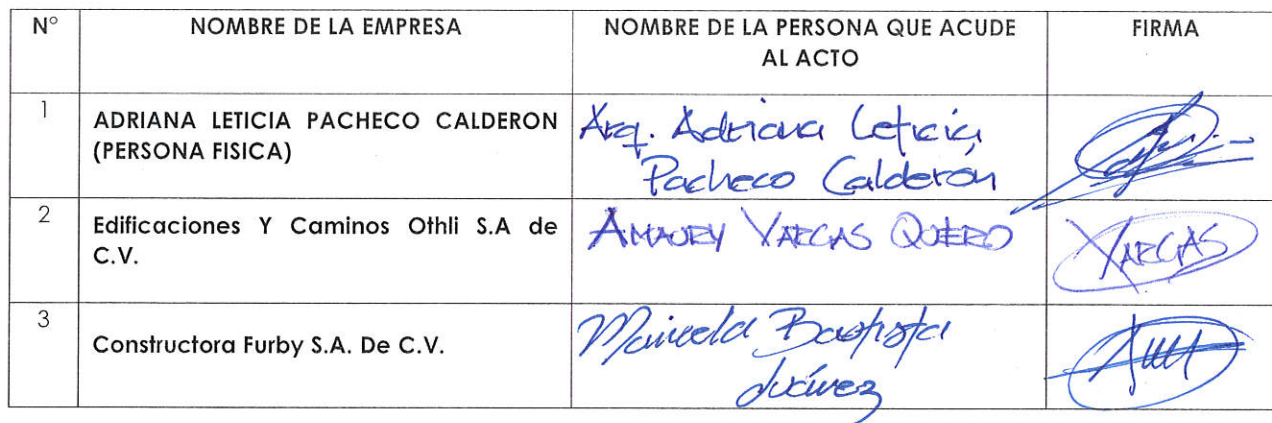 N° NOMBRE DE LA EMPRESA NOMBRE DE LA PERSONA QUE ACUDE AL ACTO FIRMA
1 ADRIANA LETICIA PACHECO CALDERON
(PERSONA FISICA)
Arq. Adriana Leticia
Pacheco Calderón
2 Edificaciones Y Caminos Othli S.A de
C.V.
AMAURY VARGAS QUERO
VARGAS
3 Constructora Furby S.A. De C.V.
Maricela Bautista
Juárez